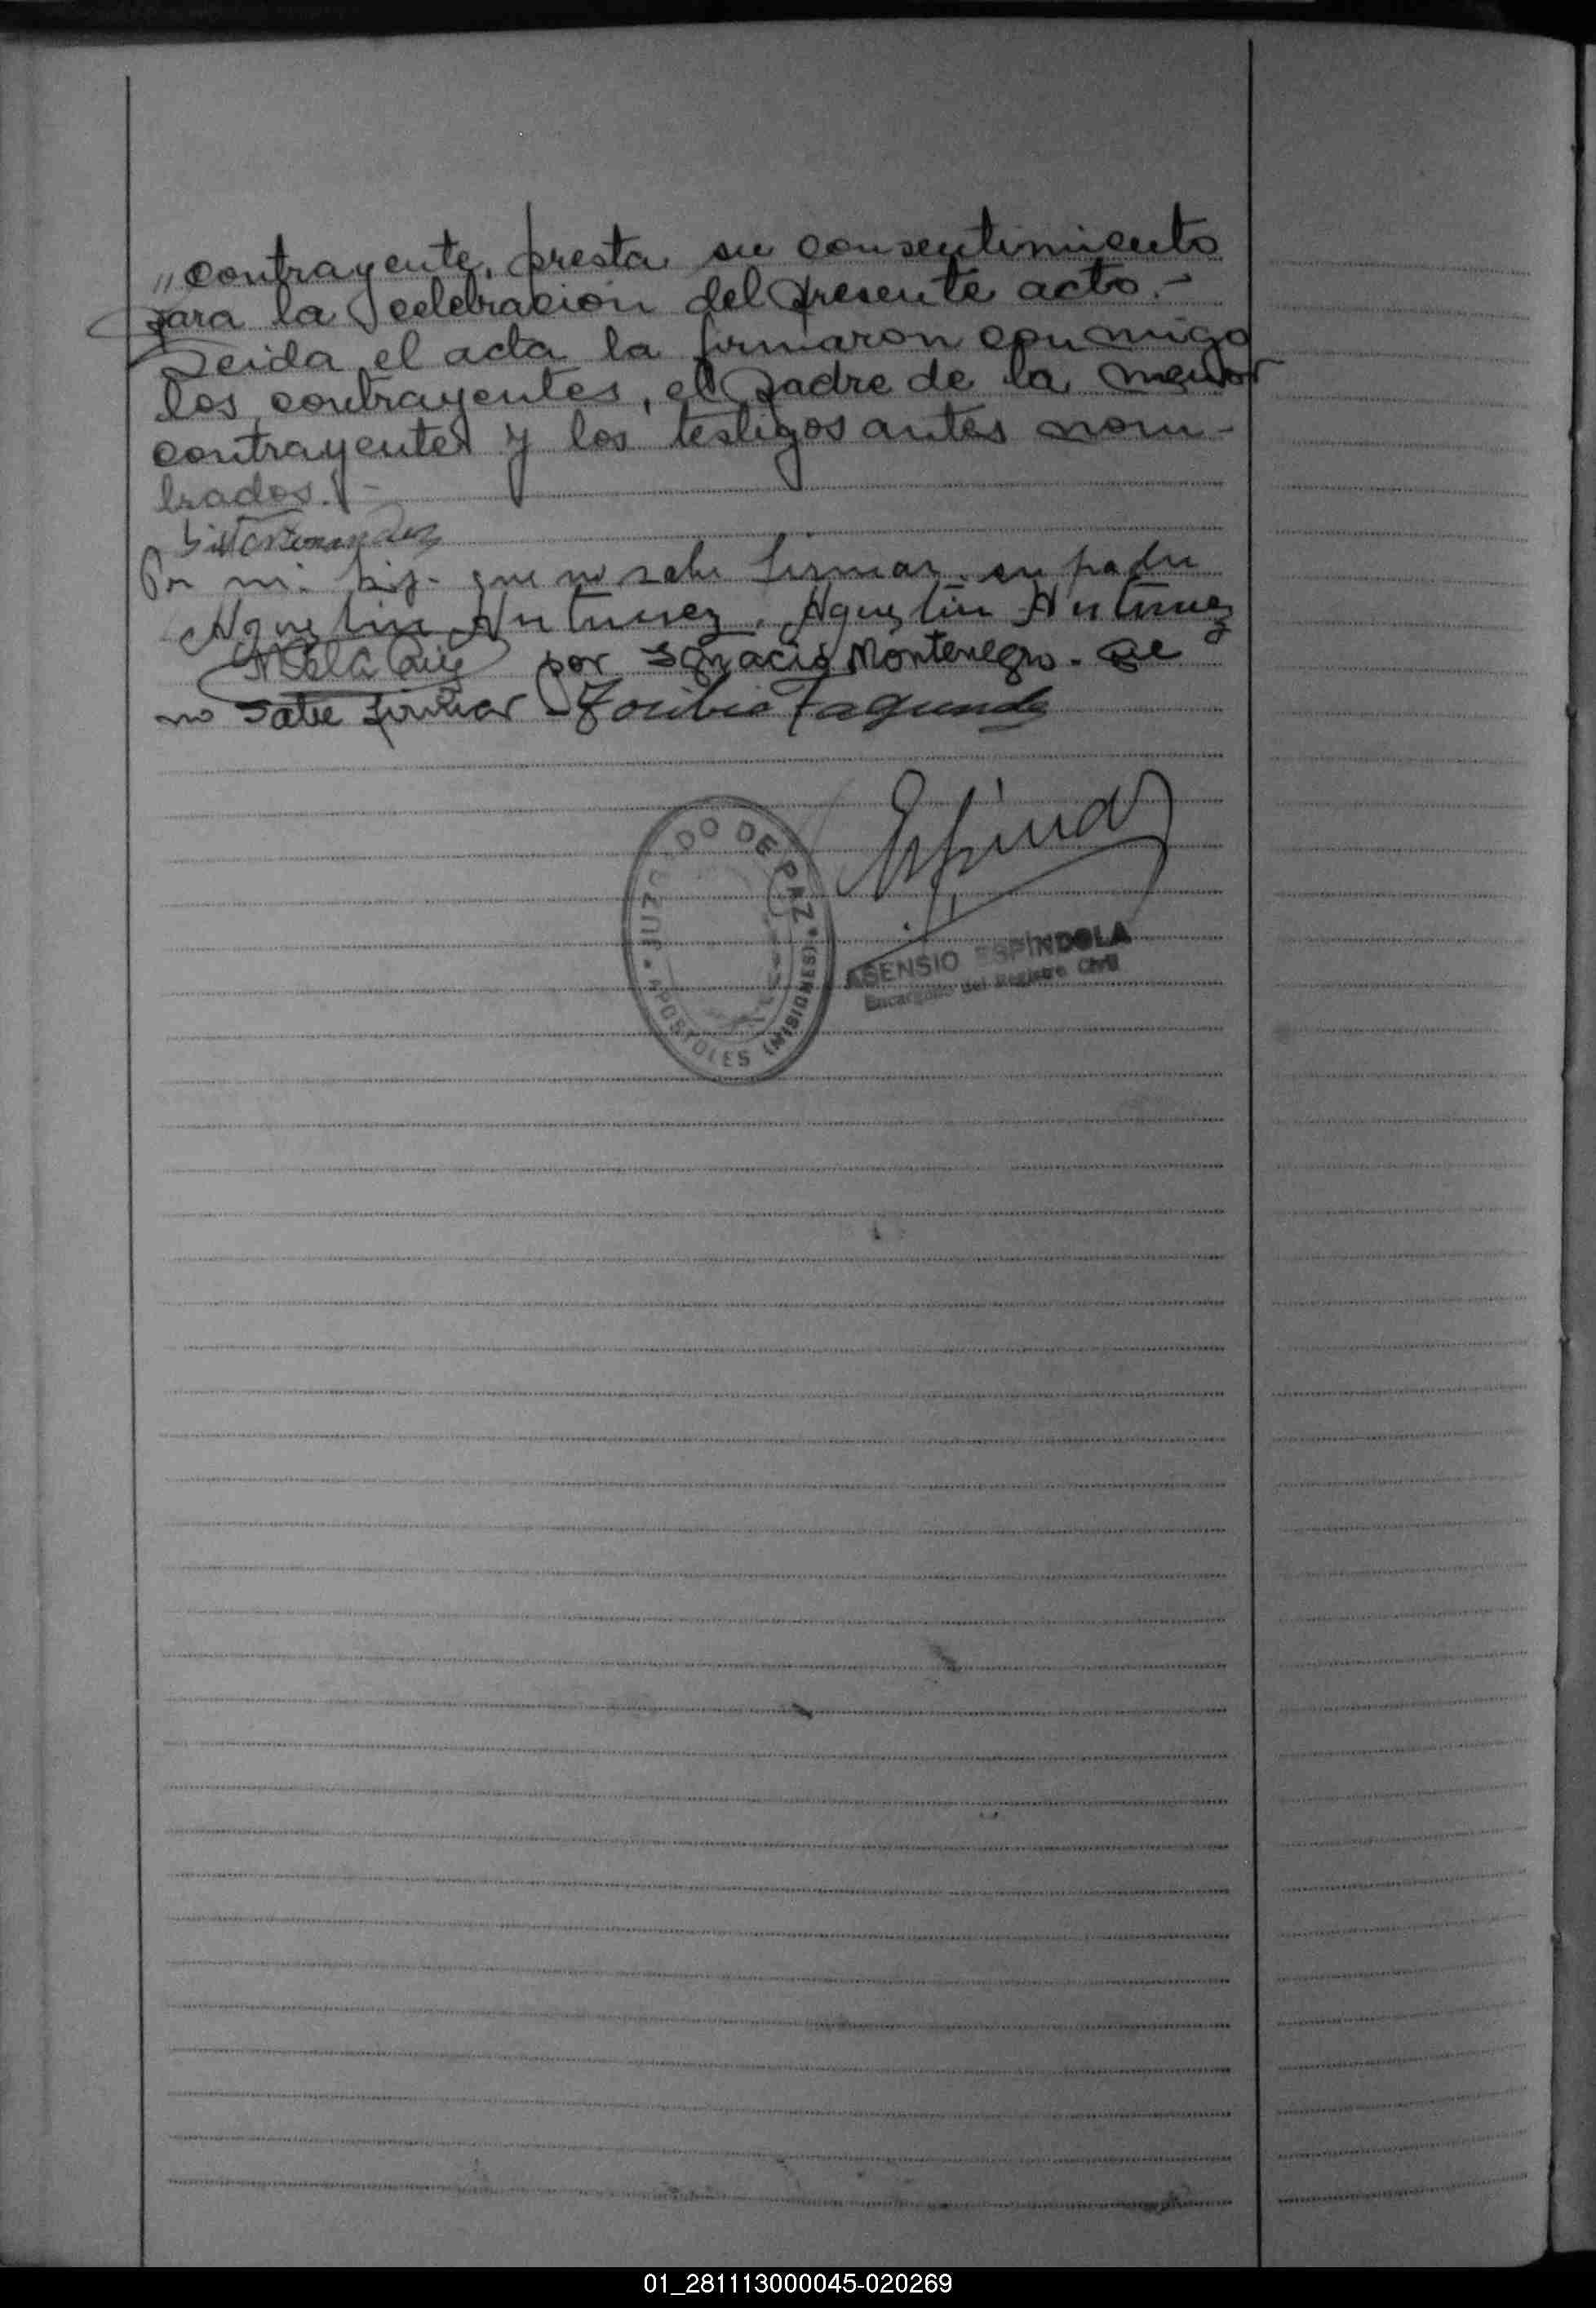 „contrayente, presta su consentimiento
para la celebracion del presente acto.-
Leida el acta la firmaron conmigo
los contrayentes, el padre de la menor
contrayente y los testigos antes nom-
brados.-
Por mi hija que no sabe firmar. su padre
Agustin Antunez. Agustin Antunez
por Ignacio Montenegro. que
no sabe firmar Toribio Fagundez
JUZGADO DE PAZ
• APOSTOLES (MISIONES) •
ASENSIO ESPÍNDOLA
Encargado del Registro Civil
01_281113000045-020269